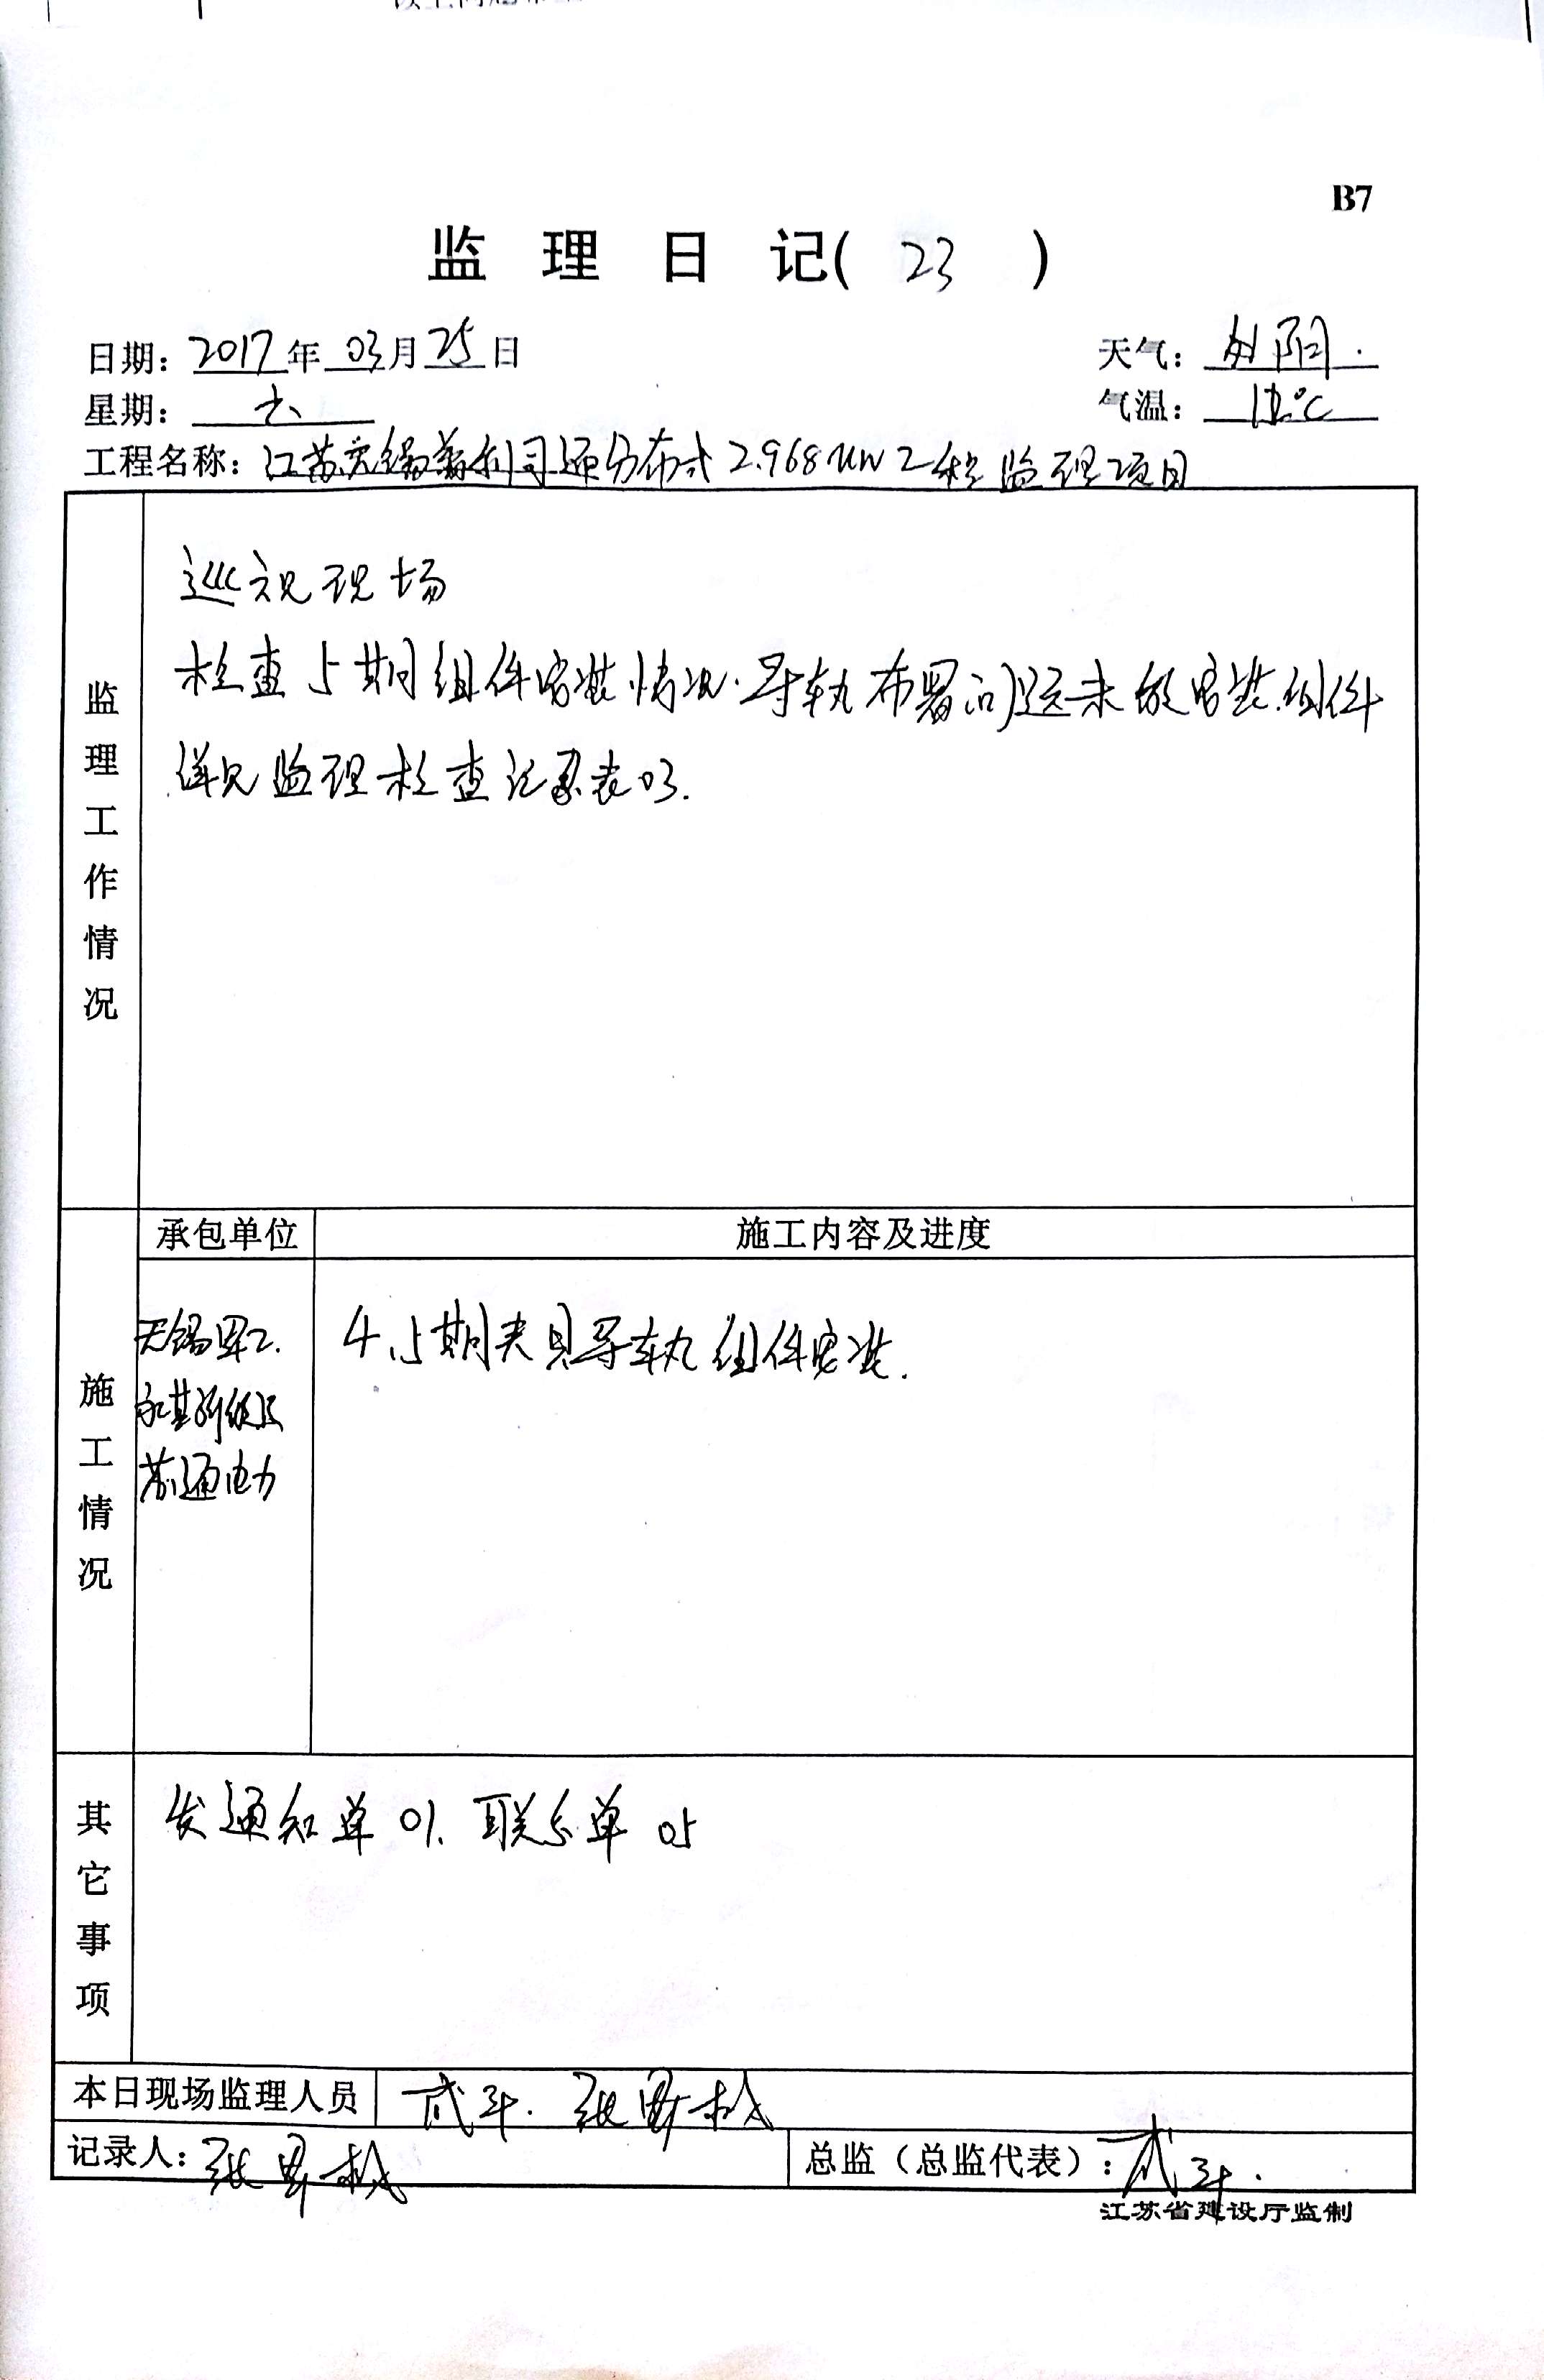 B7
监理日记( 23 )
日期: 2017 年 03 月 25 日
天气: 阴.
星期: 六
气温: 12℃
工程名称: 江苏无锡 利司通分布式2.968MW工程监理项目
监理工作情况
巡视现场
检查5期组件安装情况.导轨布署问题未做安装.组件
详见监理检查记录表03.
承包单位
施工内容及进度
施工情况
无锡
4.5期夹具导轨组件安装.
通电力
其它事项
发通知单01. 联系单05
本日现场监理人员
记录人: 张
总监(总监代表):
江苏省建设厅监制